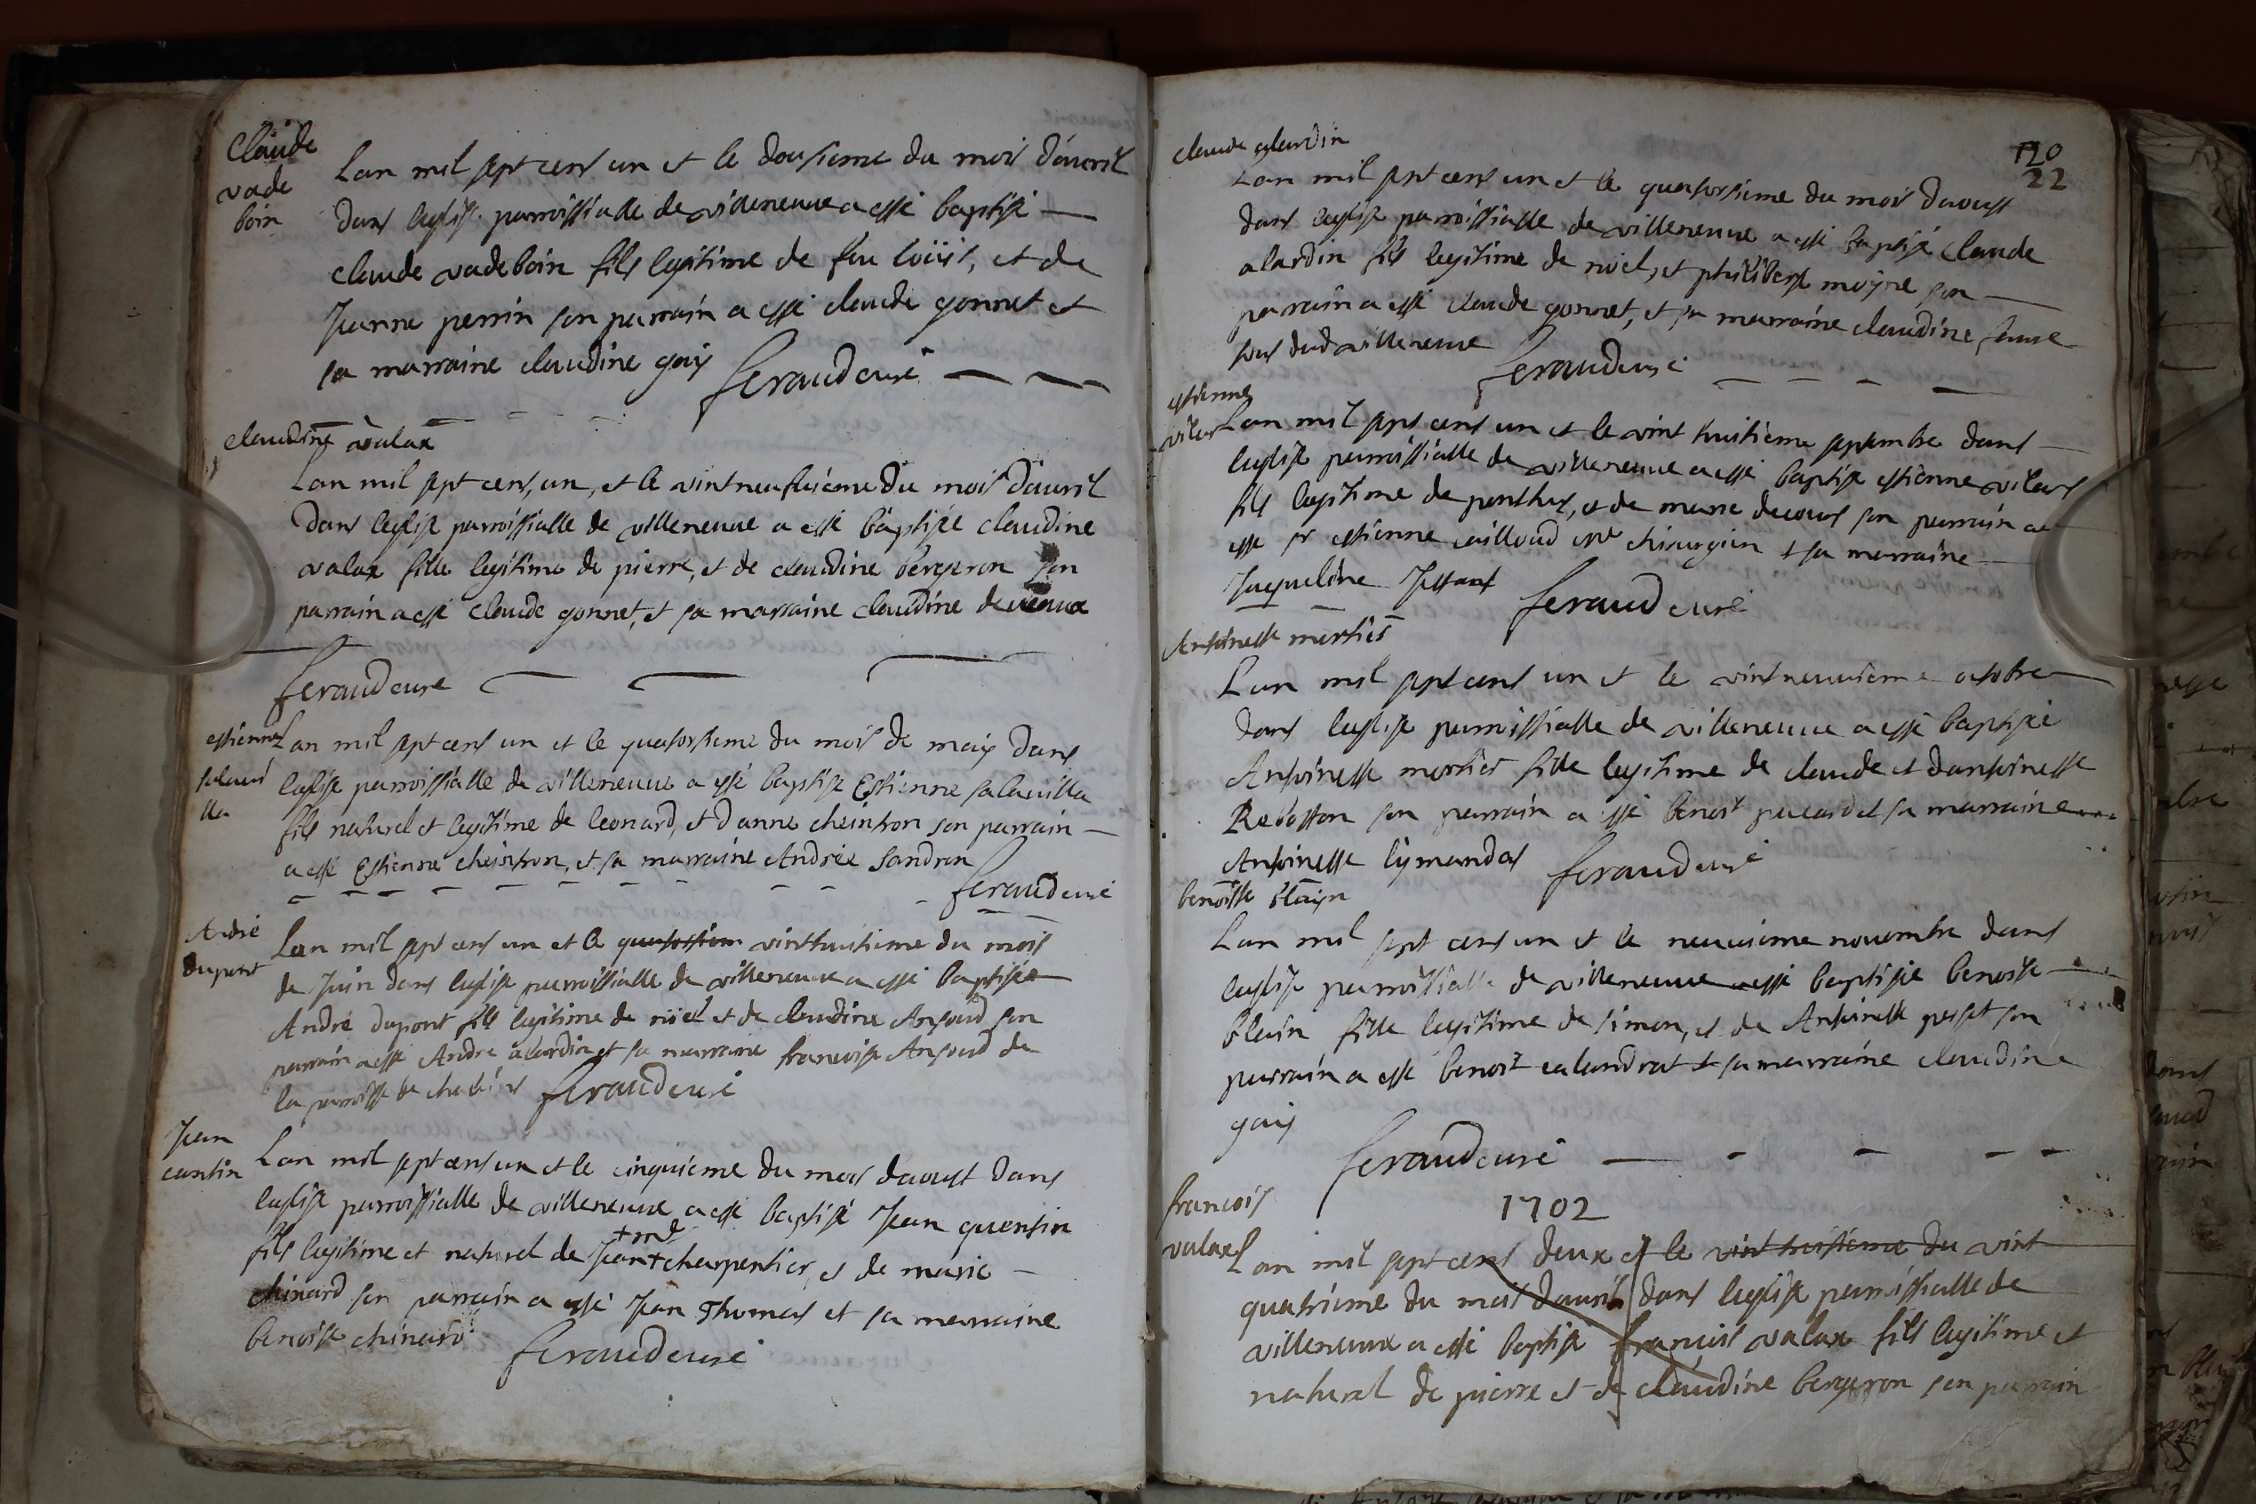 Claude
vade
boin
Lan mil sept cens un et le dousieme du mois dávril
dans leglise parroissialle de villeneuve a esté baptisé
claude vadeboin fils legitime de feu loüis, et de
Jeanne perrin son parrain a esté claude gonnet et
sa marraine claudine gay feraud curé
claudine valax
Lan mil sept cens, un, et le vintneufuieme du mois dauril
dans leglise parroissialle de villeneuve a esté baptisée claudine
valax fille legitime de pierre, et de claudine bergeron son
parrain a esté claude gonnet, et sa marraine claudine deveaux
feraud curé
estienne
salavuil
lla
Lan mil sept cens un et le quatorsieme du mois de may dans
leglise parroissialle de villeneuve a esté baptisé Estienne salavilla
fils naturel et legitime de leonard, et danne cheintron son parrain
a esté Estienne cheintron, et sa marraine Andrée sandron
feraud curé
André
dupont
Lan mil sept cens un et le quatorsiem vinthuitieme du mois
de Juin dans leglise parroissialle de villeneuve a esté baptisé
André dupont fils legitime de noël et de claudine Ansoud son
parrain a esté André alardin et sa marraine francoise Ansoud de
la parroisse de feraud curé
Jean
cantin
Lan mil sept cens un et le cinquieme du mois daoust dans
leglise parroissialle de villeneuve a esté baptisé Jean quentin
+ md
fils legitime et naturel de Jean + charpentier, et de marie
chinard son parrain a esté Jean Thomas et sa marraine
benoise chinard feraud curé
120
22
claude alardin
Lan mil sept cens un et le quatorsieme du mois daoust
dans leglise parroissialle de villeneuve a esté baptisé claude
alardin fils legitime de noël, et philiberte moyne son
parrain a esté claude gonnet, et sa marraine claudine
tous dud villeneuve feraud curé
estienne
vilars
Lan mil sept cens un et le vint huitieme septembre dans
leglise parroissialle de villeneuve a esté baptisé estienne vilars
fils legitime de ponthus, et de marie decours son parrain a
esté sr estienne cailloud mre chirurgien et sa marraine
Jaqueline feraud curé
Antoinette mortier
Lan mil sept cens un et le vintneuvieme octobre
dans leglise parroissialle de villeneuve a esté baptisée
Antoinette mortier fille legitime de claude et dantoinette
Rebotton son parrain a esté benoit picardet sa marraine
Antoinette limandas feraud curé
benoiste blain
Lan mil sept cens un et le neuvieme novembre dans
leglise parroissialle de villeneuve a esté baptisée benoiste
blain fille legitime de simon, et de Antoinette perset son
parrain a esté benoit calandrat et sa marraine claudine
gay
feraud curé
1702
francois
valax
Lan mil sept cens deux et le vint huitieme du vint
quatrieme du mois dauril dans leglise parroissialle de
villeneuve a esté baptisé francois valax fils legitime et
naturel de pierre et de claudine bergeron son parrain